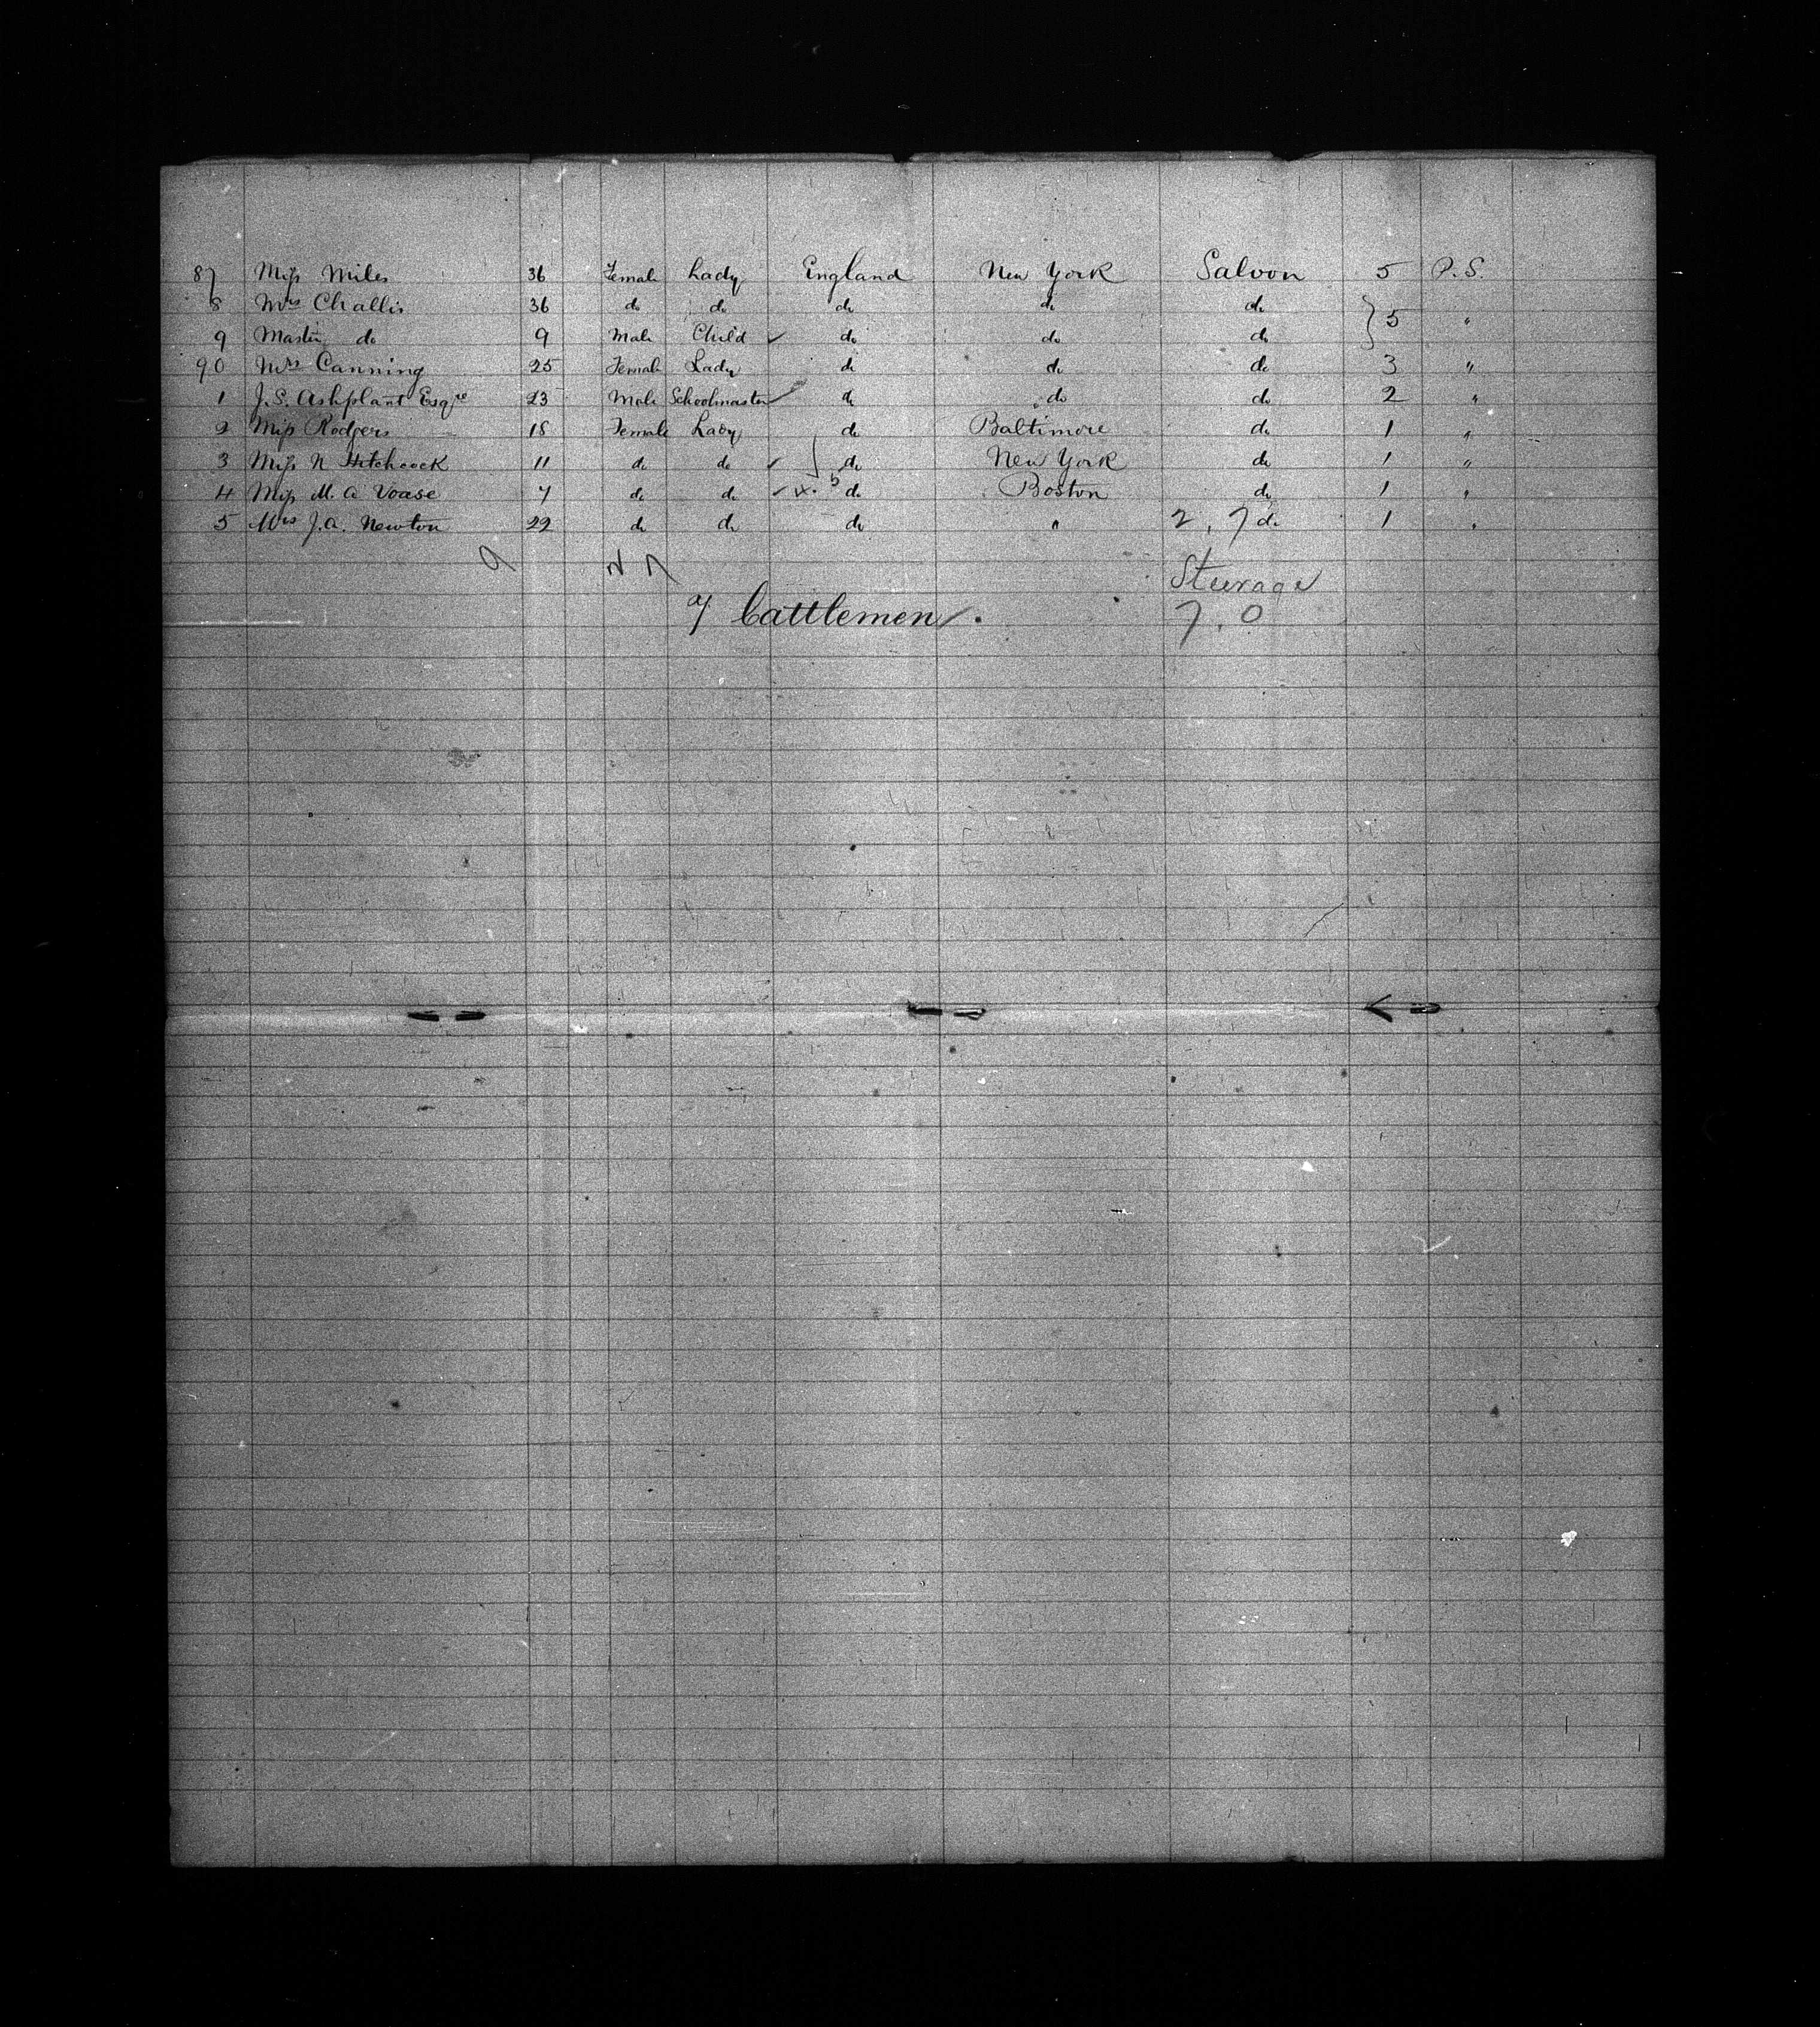 87 Miss Miles 36 Female Lady England New York Saloon 5 P.S.
8 Mrs Challis 36 do do do do do } 5 "
9 Master do 9 Male Child ✓ do do do
90 Mrs Canning 25 Female Lady do do do 3 "
1 J.S. Ashplant Esqre 23 Male Schoolmaster ✓ do do do 2 "
2 Miss Rodgers 18 Female Lady do Baltimore do 1 "
3 Miss N Hitchcock 11 do do ✓ do New York do 1 "
4 Miss M. A Voase 7 do do ✓ 4. 5 do Boston do 1 "
5 Mrs J.A. Newton 22 do do do " 2, 7 do 1 "
9 2 7
Steerage
7 Cattlemen.
7.0